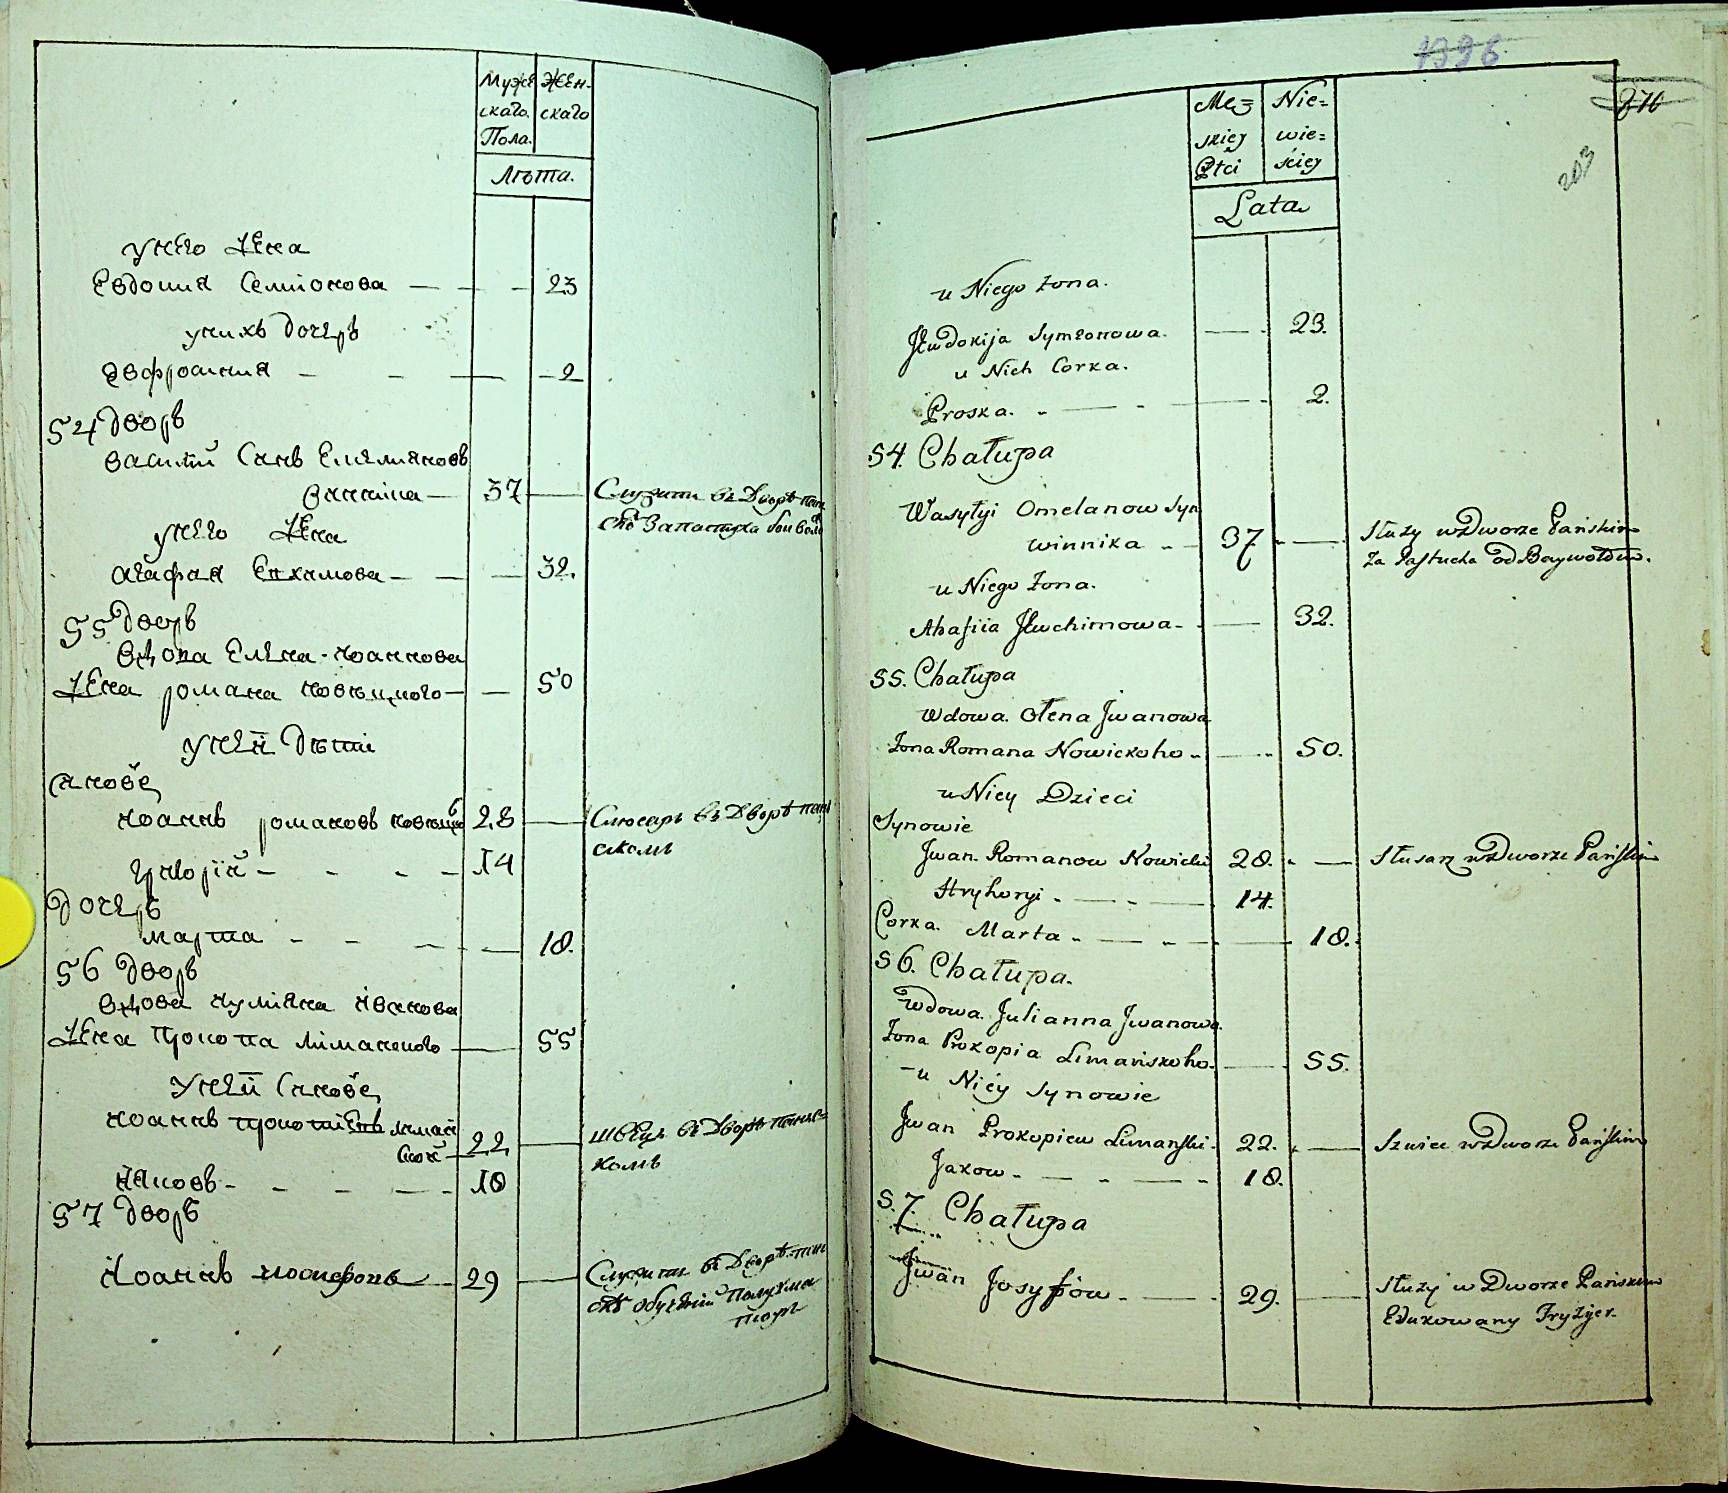 Муже Жен-
скаго. скаго
Пола.
Лѣта.
у него жена
Евдокия Семионова — - - 23
у нихъ дочеръ
Эвфросиния - - — - 2
54 дворъ
Василий Синъ Емилияновъ
Винника — 37 — Служитъ въ Дворѣ пан
скѡ за пастуха
у него жена
Агафия Еԥхимова - — - 32.
55 дворъ
Вдова Елена Иоаннова
жена романа новѣцкого — - 50
у ней дѣти
Синове
Иоаннъ романовъ 28 — Слюсаръ въ Дворѣ пань
скомъ
Григорїй - - - - 14
Дочеръ
марта - - - - 18.
56 дворъ
Вдова Иулияна Иванова
жена прокопа лиманского — 55
у ней Синове
Иоаннъ прокопиевъ лиман
ский — 22, — Швецъ въ Дворѣ панс=
комъ
Ияковъ - - - — 18
57 дворъ
Иоаннъ иосифовъ — 29 — Служитъ въ Дворѣ пан
1396
276
203
Mę= Nie=
skiey wie=
Płci ściey
Lata
u Niego żona.
Jewdokija Symeonowa. — 23.
u Nich Corka.
Proska. - — - — 2.
54. Chałupa
Wasylyi Omelanow Syn
winnika - - 37 - — Służy w Dworze Pańskim
za Pastucha od Baywołow.
u Niego żona.
Ahafiia Jewchimowa - — 32.
55. Chałupa
Wdowa Ołena Jwanowa
żona Romana Nowickoho - — 50.
u Niey Dzieci
Synowie
Jwan Romanow Nowicki 28. - — Slusarz w Dworze Pańskim
Hryhoryi - — - — 14.
Corka. Marta - — - — 18.
56. Chałupa.
Wdowa Julianna Jwanowa.
żona Prokopia Limańskoho. — 55.
- u Niey Synowie
Jwan Prokopiew Limański. 22. - — Szwiec w Dworze Pańskim
Jakow - — - — - 18.
57. Chałupa
Jwan Josyfów - — 29. — Służy w Dworze Pańskim
Edukowany Fryzyer.